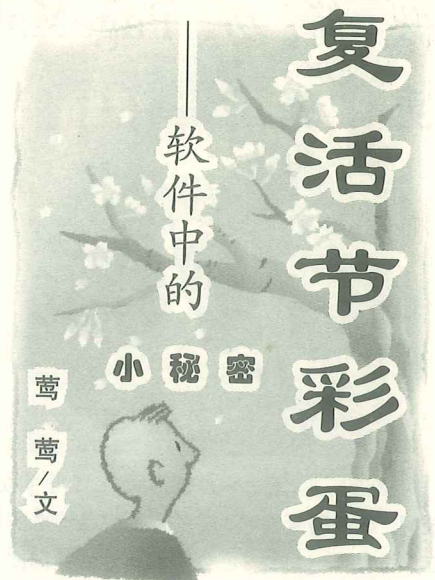 复活节彩蛋
——软件中的
小秘密
莺莺/文